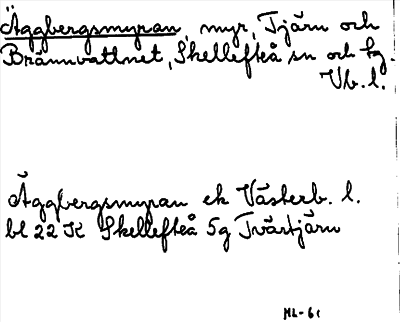 Äggbergsmyran, myr, Tjärn och
Brännvattnet, Skellefteå sn och kg.
Vb. l.
Äggbergsmyran ek Västerb. l.
bl 22 K Skellefteå 5g Tvärtjärn
ML-61